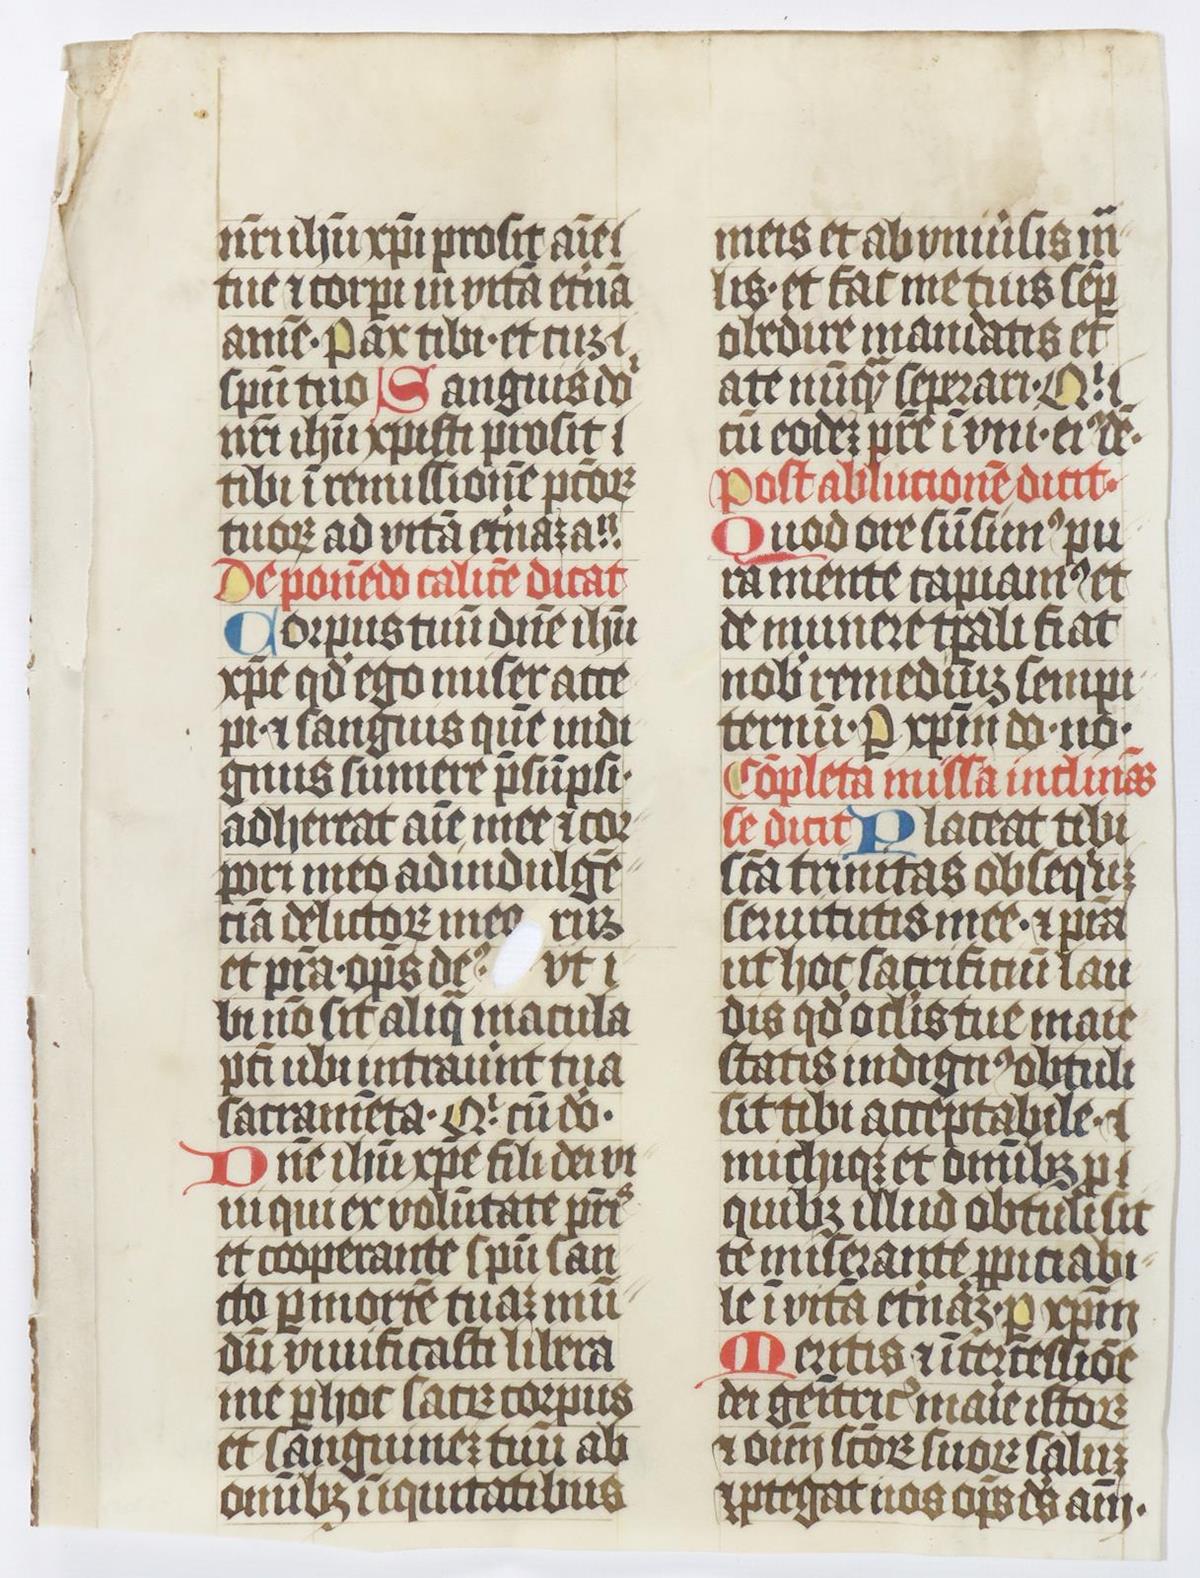 nr̄i ihū xp̄i prosit aīe
tue ⁊ corpi in vitā et̄nā
amē· Pax tibi· et cuʒ
spū tuo Sanguis do
nr̄i ihū xpisti prosit
tibi ī remissionē pctōꝝ
tuoꝝ ad vitā et̄naꝫ a
De ponēdo calicē dicat
Corpus tuū dn̄e ihū
xp̄e qd̓ ego miser acce
pi· ⁊ sanguis quē indi
gnus sumere p̄sūpsi·
adhereat aīe mee ⁊ cor
pori meo ad indulgē
ciā delictoꝝ meo ruʒ
et pr̄a· op̄s de᷒ vt i
bi nō sit aliq̄ macula
pcti ubi intraūnt tua
sacramēta· Q¹ cū do·
Dn̄e ihū xp̄e fili dei vi
ui qui ex volūtate pr̄is
et cooperante spū san
cto ꝑ mortē tuaꝫ mū
dū viuificasti libera
me ꝑ hoc sacꝝ corpus
et sanguineꝫ tuū ab
omībʒ īiquitatibus
meis et ab vniūsis m̄
lis· et fac me tuis semꝑ
obedire mandatis et
a te nūqꝫ seperari· Q¹
cū eodeꝫ pr̄e ī vni· ei᷒ de·
Post ablucionē dicit·
Quod ore sūsim᷒ pu
ra mente capiam᷒ et
de munere tp̄ali fiat
nob̓ remediūʒ sempi
ternū· P xp̄m do· no·
Cōpleta missa inclinās
se dicit Placeat tibi
sc̄a trinitas obseqiūꝫ
seruitutis mee· ⁊ pr̄a
ut hoc sacrificiū lau
dis qd̓ oc̄lis tue maie
statis indign᷒ obtuli
sit tibi acceptabile·
michiqꝫ et omībʒ p
quibʒ illud obtuli sit
te miserante ꝓpiciabi
le ī vitā et̄naʒ· p xp̄m
Meritis ⁊ īt̓cessiōe
dei geītric᷒ maīe istoꝝ
⁊ oīm sc̄toꝝ suoꝝ saluꝫ
⁊ ꝓtegat nos op̄s ds̄ am̄·